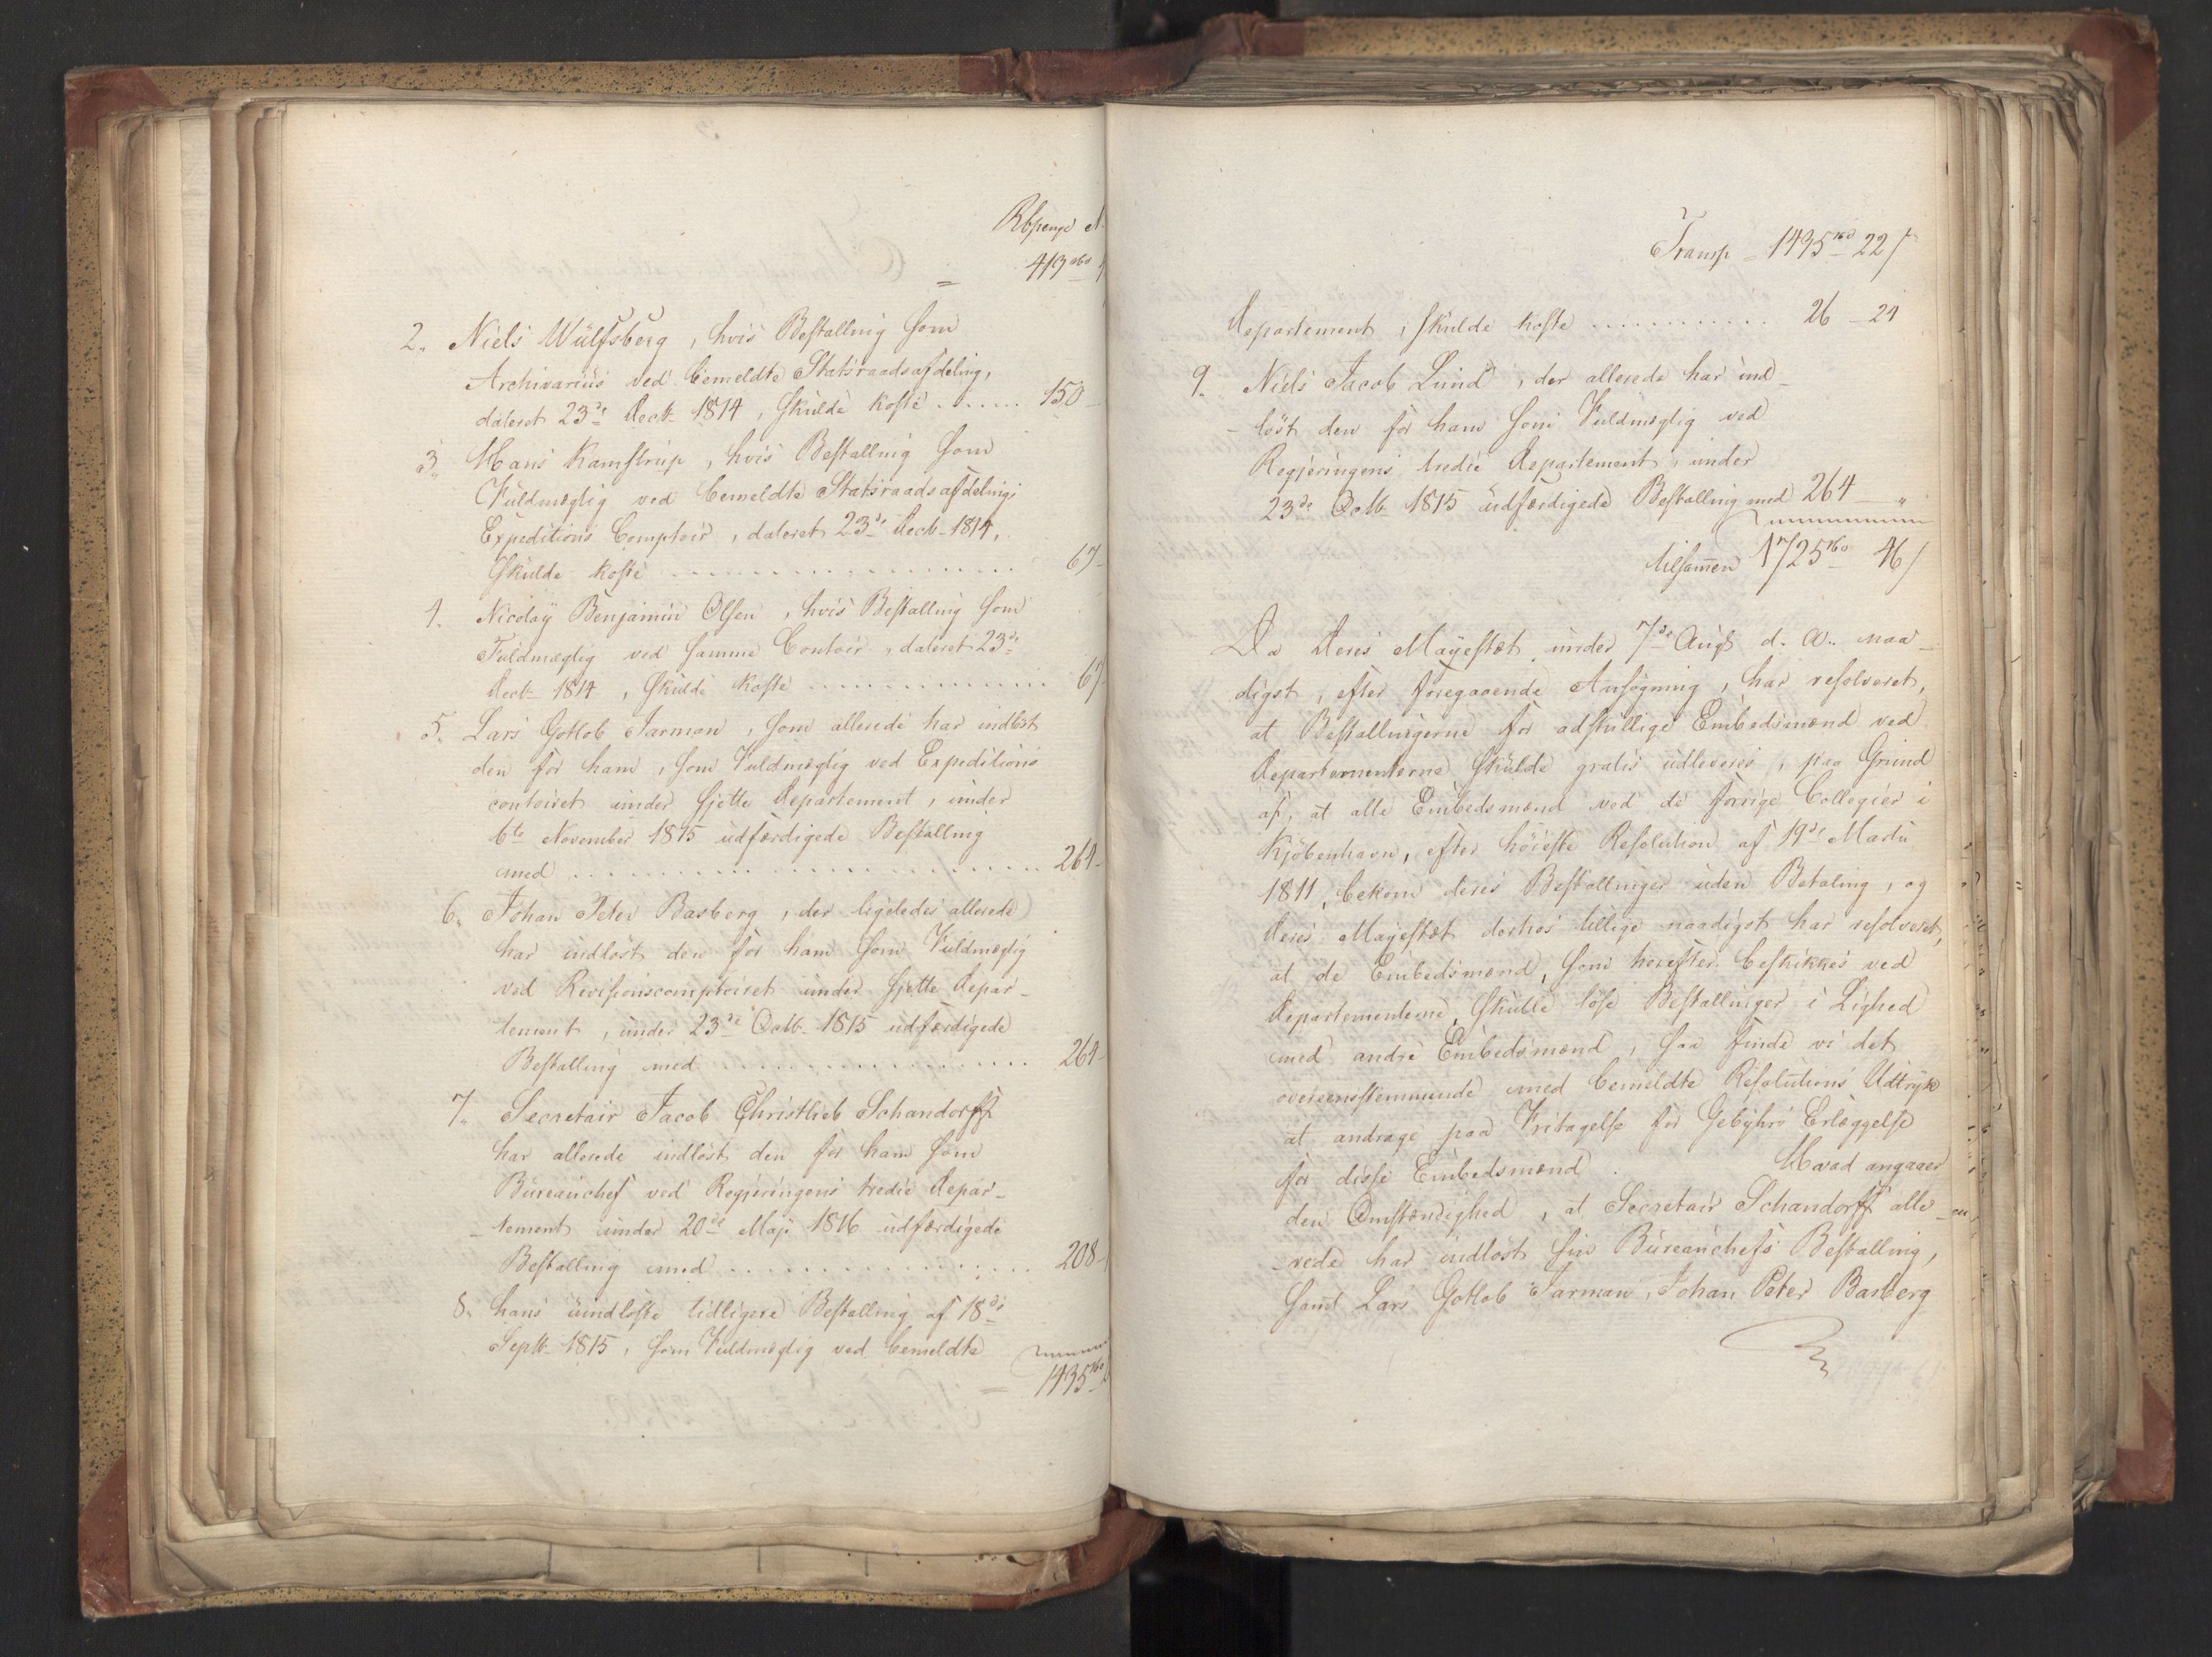 Rbpenge
= 413 rbd
2. Niels Wülfsberg, hvis Bestalling som
Archivarius ved bemeldte Statsraadsafdeling,
dateret 23de Decb. 1814, skulde koste ....... 150 -
3. Hans Kamstrup, hvis Bestalling som
Fuldmægtig ved bemeldte Statsraadsafdelings
Expeditions Comptoir, dateret 23de Decb. 1814,
skulde koste .................... 67 -
4. Nicolay Benjamin Olsen, hvis Bestalling som
Fuldmægtig ved samme Contoir, dateret 23de
Decb. 1814, skulde koste .............. 67
5. Lars Gotlob Jarman, som allerede har indløst
den for ham, som Fuldmægtig ved Expeditions
contoiret under sjette Departement, under
6te November 1815 udfærdigede Bestalling
med ........................... 264 -
6. Johan Peter Basberg, der ligeledes allerede
har indløst den for ham som Fuldmægtig
ved Revisionscomptoiret under sjette Depar-
tement, under 23de Octb. 1815 udfærdigede
Bestalling med ................. 264 -
7. Secretair Jacob Christlieb Schandorff
har allerede indløst den for ham som
Büreauchef ved Regjeringens tredie Depar-
-tement under 20de Maji 1816 udfærdigede
Bestalling med ................ 208 -
8. hans uindløste tidligere Bestalling af 18de
Septb. 1815, som Fuldmægtig ved bemeldte
= 1435 rbd
Transp = 1435 rbd 22 s
Departement, skulde koste ............ 26 - 24
9. Niels Jacob Lund, der allerede har ind-
-løst den for ham som Fuldmægtig ved
Regjeringens tredie Departement, under
23de Octb. 1815 udfærdigede Bestalling med 264 - "
tilsammen 1725 rbd 46 s
Da Deres Majestæt under 7de Augt d. A. naa-
digst, efter foregaaende Ansøgning, har resolveret,
at Bestallingerne for adskillige Embedsmænd ved
Departementerne skulde gratis udleveres, paa Grund
af, at alle Embedsmænd ved de forrige Collegier i
Kjöbenhavn, efter höieste Resolution af 19de Martii
1811, bekom deres Bestallinger uden Betaling, og
Deres Majestæt derhos tillige naadigst har resolveret,
at de Embedsmænd, som herefter beskikkes ved
Departementerne, skulle löse Bestallinger i Lighed
med andre Embedsmænd, saa finde vi det
overeensstemmende med bemeldte Resolutions Udtryk
at andrage paa Fritagelse for Gebyhrs Erlæggelse
for disse Embedsmænd. Hvad angaaer
den Omstændighed, at Secretair Schandorff alle-
-rede har indløst sin Büreauchefs Bestalling,
samt Lars Gotlob Jarman, Johan Peter Basberg